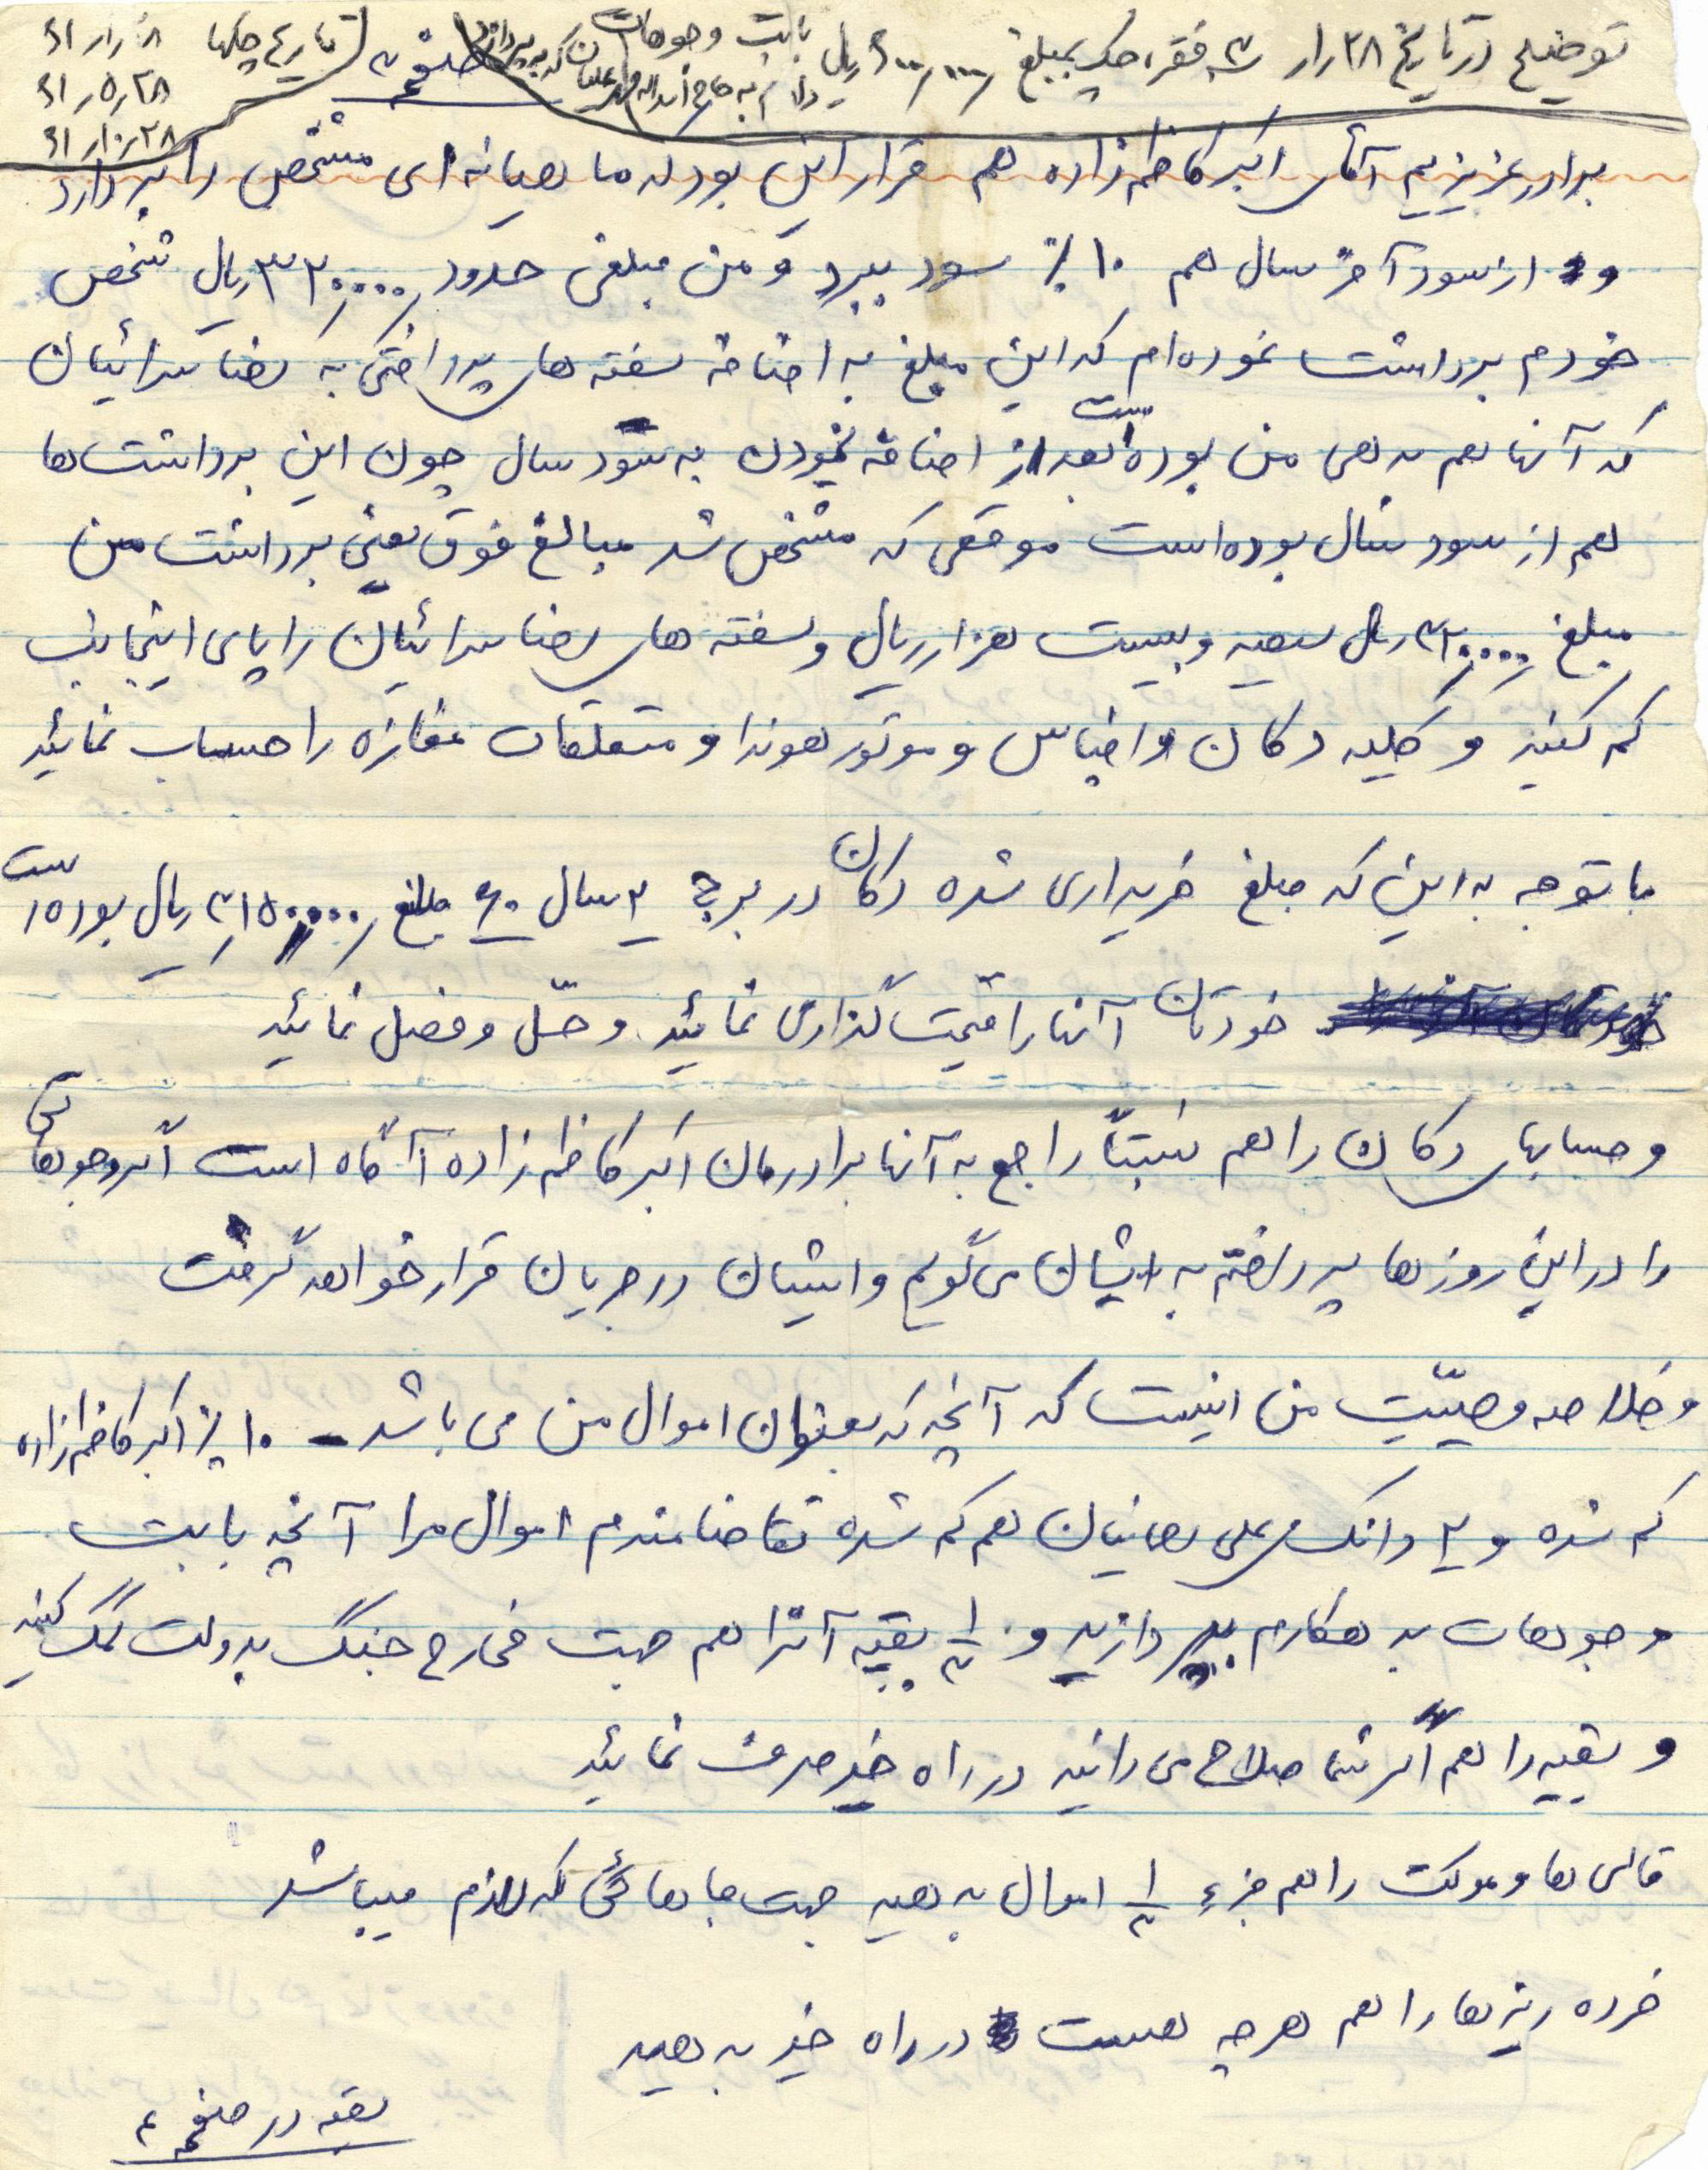 توضیح در تاریخ ۲۸ر۱ر ۳ فقره چک بمبلغ ۶۰۰ر۰۰۰ر ریال بابت وجوهات
دادم به حاج اسداله که بپردازد
صفحه ۳
تاریخ چکها ۲۸ر۱ر۶۱
۲۸ر۵ر۶۱
۲۸ر۱۰ر۶۱
برادر عزیزم آقای اکبر کاظم‌زاده هم قرار این بود که ماهیانه‌ای مشخص را بردارد
و از سود آخر سال هم ۱۰٪ سود ببرد و من مبلغی حدود ۳۲۰ر۰۰۰ر ریال شخص
خودم برداشت نموده‌ام که این مبلغ به اضافه سفته‌های پرداختی به رضا سرائیان
که آنها هم بدهی من بوده است بعد از اضافه نمودن به سود سال چون این برداشت‌ها
هم از سود سال بوده است موقعی که مشخص شد مبالغ فوق یعنی برداشت من
مبلغ ۳۲۰ر۰۰۰ر ریال سیصد و بیست هزار ریال و سفته‌های رضا سرائیان را پای اینجانب
کم کنید و کلیه دکان و اجناس و موتور هوندا و متعلقات مغازه را حساب نمائید
با توجه به این که مبلغ خریداری شده دکان در برج ۲ سال ۶۰ مبلغ ۳ر۱۵۰ر۰۰۰ر ریال بوده است
خودتان آنها را قیمت گذاری نمائید و حلّ و فصل نمائید
و حسابهای دکان را هم نسبتاً راجع به آنها برادرمان اکبر کاظم‌زاده آگاه است اگر وجوهاتی
را در این روزها پرداختم به ایشان می‌گویم و ایشان در جریان قرار خواهد گرفت
و خلاصه وصیّت من اینست که آنچه که بعنوان اموال من می باشد - ۱۰٪ اکبر کاظم‌زاده
کم شده و ۲ دانگ علی رهائیان هم کم شده تقاضامندم اموال مرا آنچه بابت
وجوهات بدهکارم بپردازید و ۱/۳ بقیه آنرا هم جهت مخارج جنگ بدولت کمک کنید
و بقیه را هم اگر شما صلاح می دانید در راه خیر صرف نمائید
قالی ها و موکت را هم جزء ۱/۳ اموال بدهید جهت جاهائی که لازم میباشد
خرده ریزها را هم هرچه هست در راه خیر بدهید
بقیه در صفحه ۴